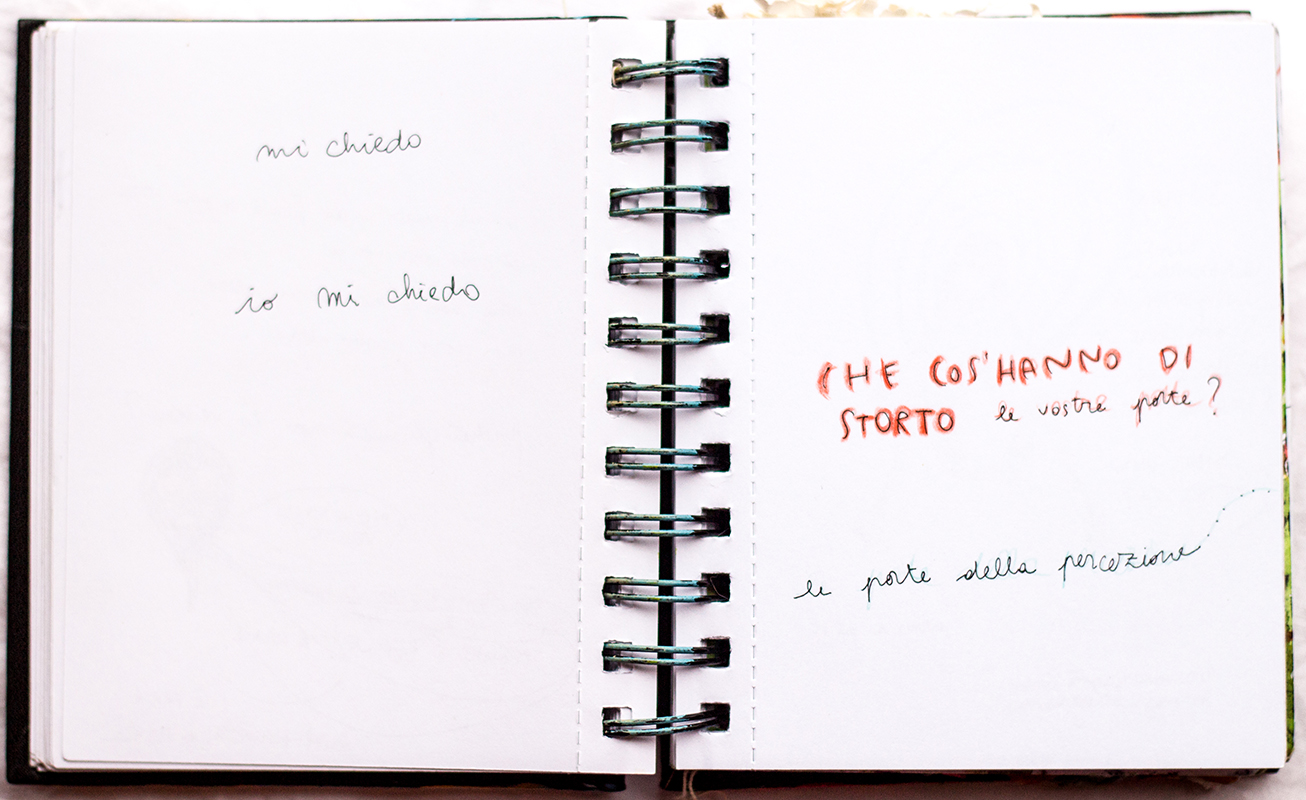 mi chiedo
io mi chiedo
CHE COS'HANNO DI
STORTO le vostre porte?
le porte della percezione